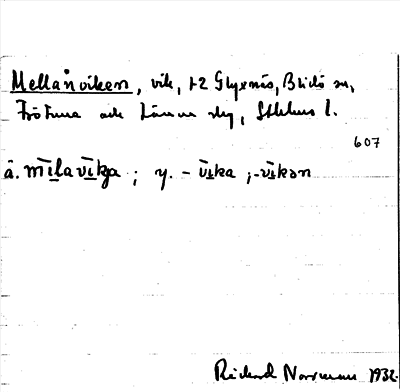 Mellanviken, vik, 1-2 Glyxnäs, Blidö sn,
Frötuna och Länna skg, Sthlms l.
607
ä. mīlavīkja ; y. -vīka ; -vīkən
Rickard Norrman 1932.